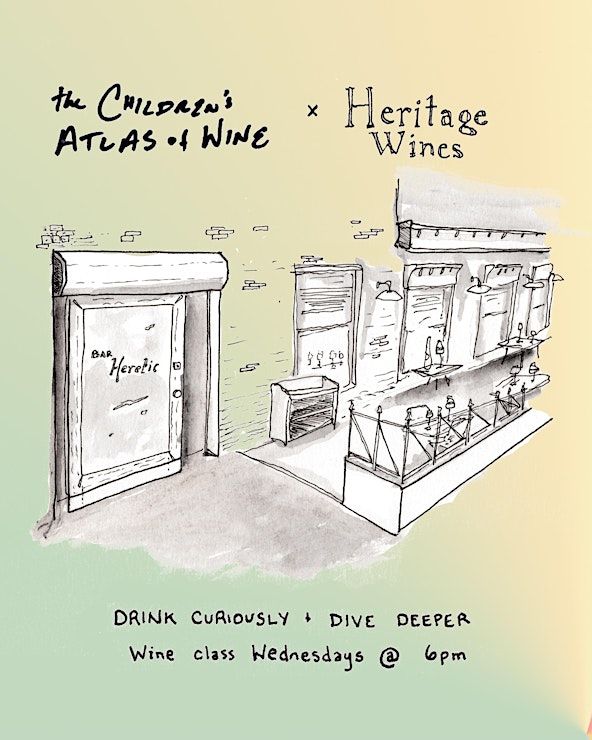 the CHILDREN'S
ATLAS of WINE
x
Heritage
Wines
BAR
Heretic
DRINK CURIOUSLY + DIVE DEEPER
Wine class Wednesdays @ 6pm